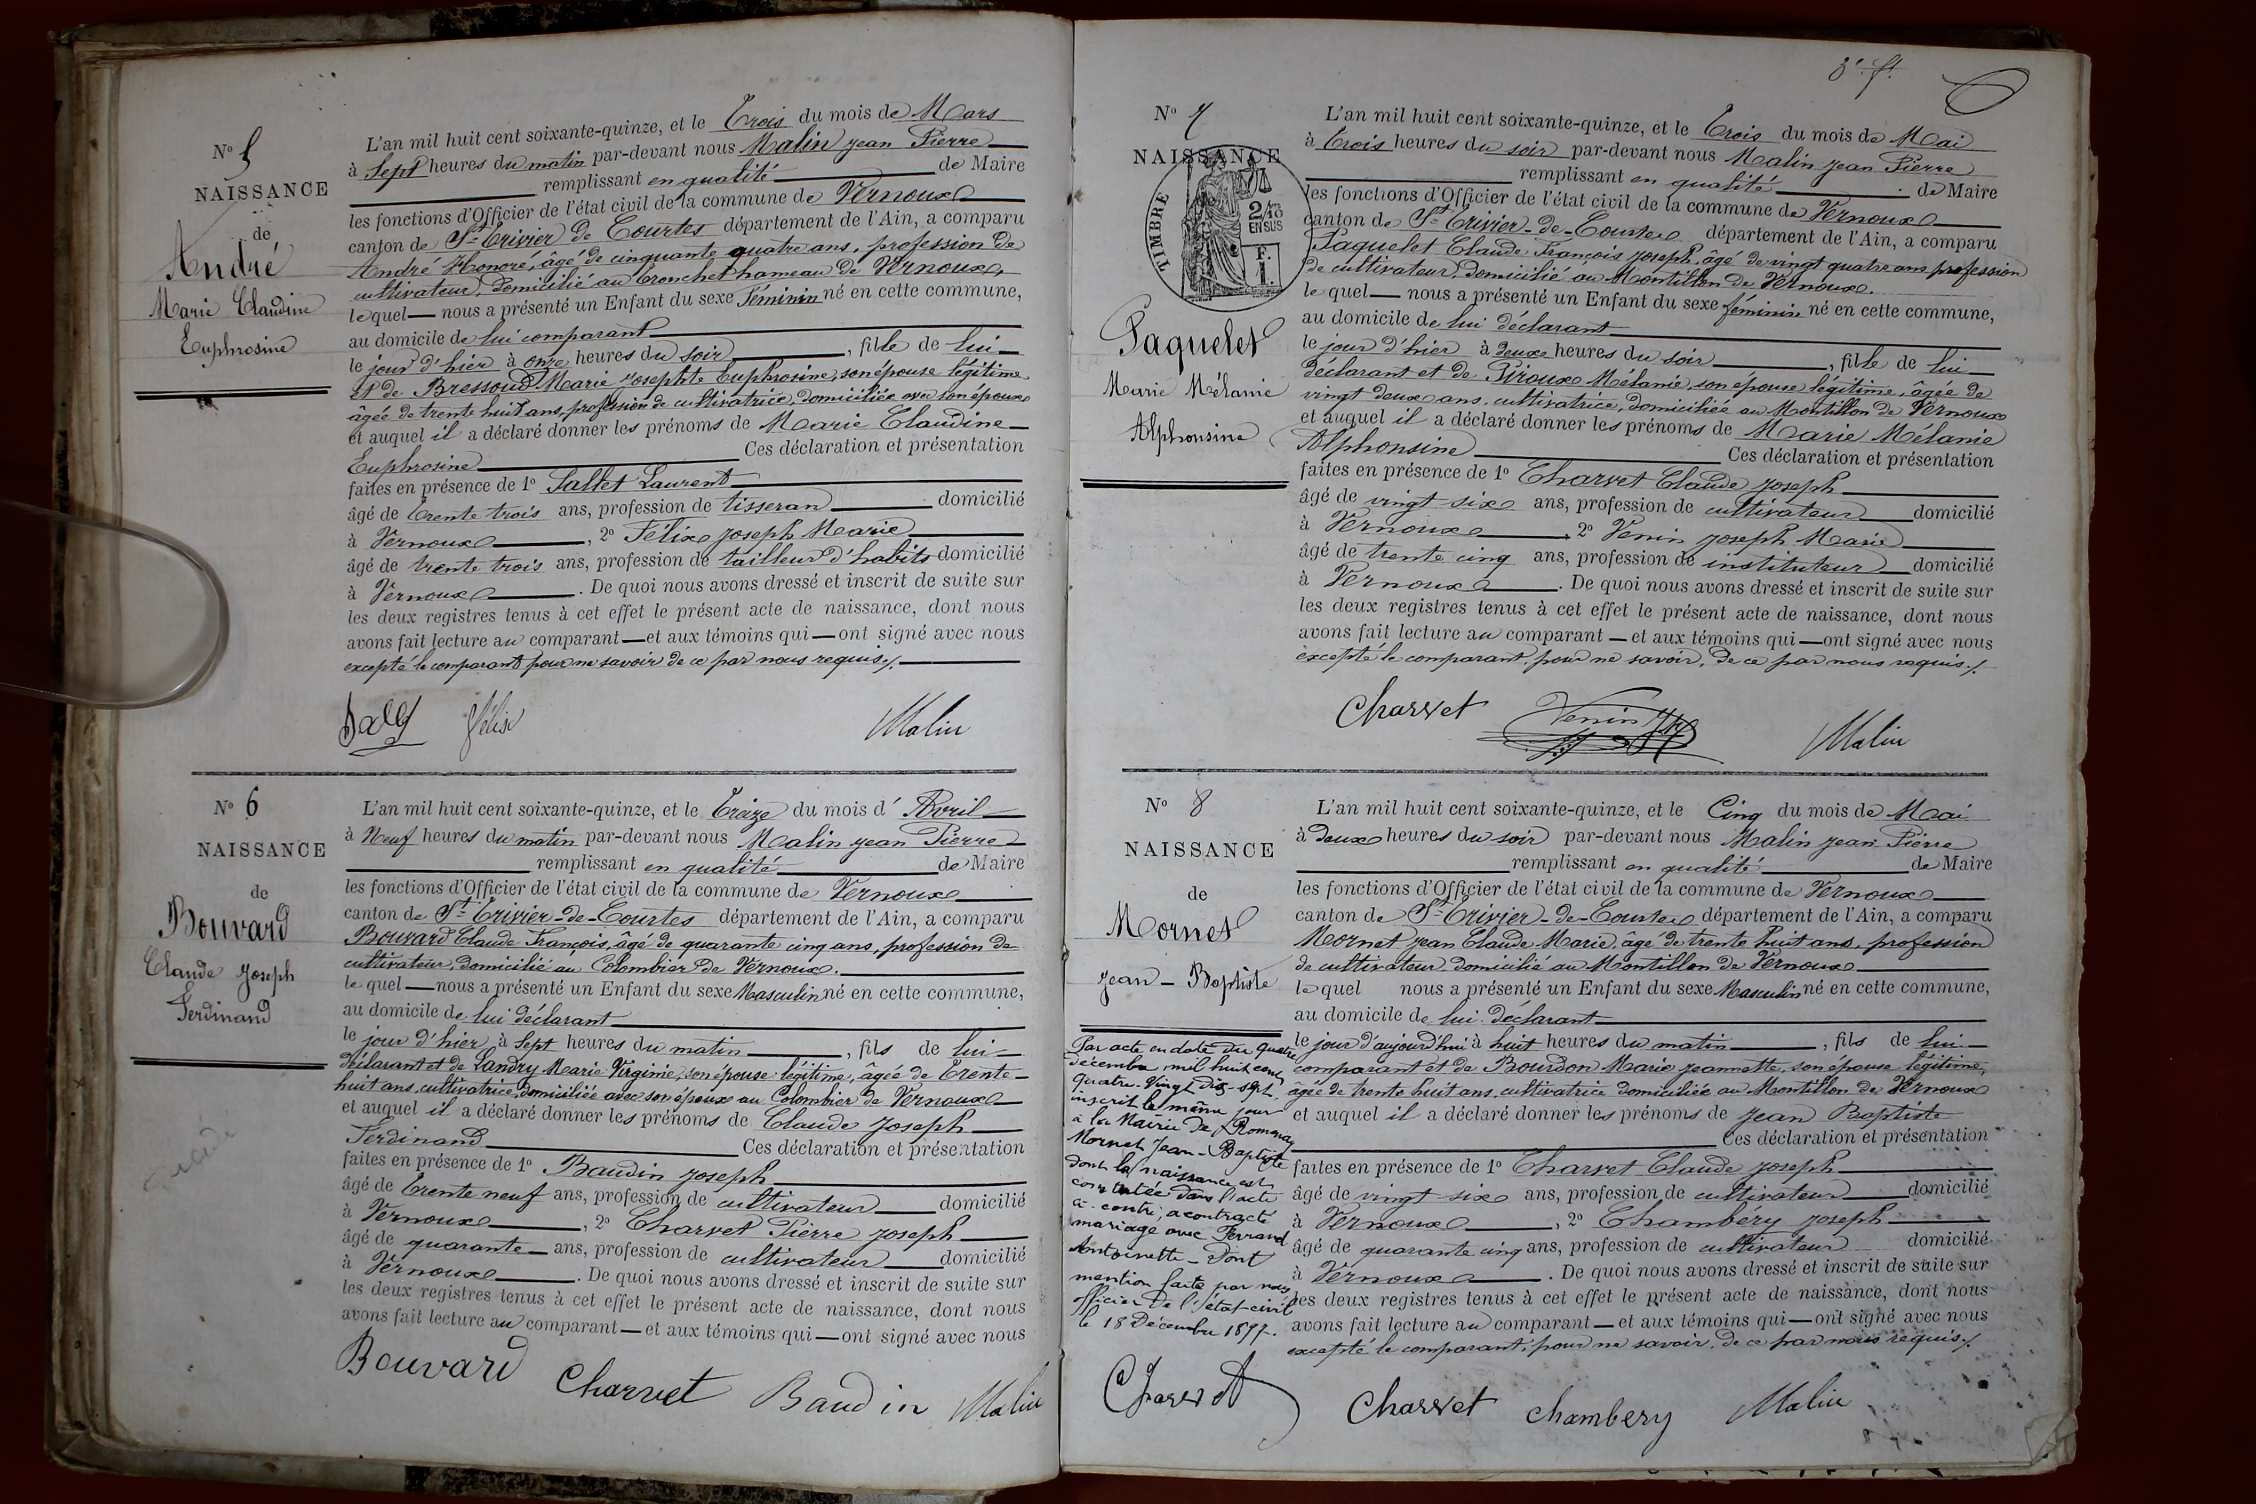 N° 5
NAISSANCE
de
André
Marie Claudine
Euphrosine
L'an mil huit cent soixante-quinze, et le Trois du mois de Mars
à Sept heures du matin par-devant nous Malin jean Pierre
remplissant en qualité de Maire
les fonctions d'Officier de l'état civil de la commune de Vernoux
canton de St Trivier de Courtes département de l'Ain, a comparu
André Honoré, âgé de cinquante quatre ans, profession de
cultivateur, domicilié au Cronchet hameau de Vernoux,
lequel nous a présenté un Enfant du sexe Féminin né en cette commune,
au domicile de lui comparant
le jour d'hier à onze heures du soir, fille de lui
et de Bressoud Marie Josephte Euphrosine, son épouse légitime
âgée de trente huit ans, profession de cultivatrice, domiciliée avec son époux
et auquel il a déclaré donner les prénoms de Marie Claudine
Euphrosine Ces déclaration et présentation
faites en présence de 1° Sallet Laurent
âgé de trente trois ans, profession de tisseran domicilié
à Vernoux, 2° Félix Joseph Marie
âgé de trente trois ans, profession de tailleur d'habits domicilié
à Vernoux. De quoi nous avons dressé et inscrit de suite sur
les deux registres tenus à cet effet le présent acte de naissance, dont nous
avons fait lecture au comparant et aux témoins qui ont signé avec nous
excepté le comparant pour ne savoir de ce par nous requis./.
Félix Malin
N° 6
NAISSANCE
de
Bouvard
Claude Joseph
Ferdinand
L'an mil huit cent soixante-quinze, et le Treize du mois d'Avril
à Neuf heures du matin par-devant nous Malin jean Pierre
remplissant en qualité de Maire
les fonctions d'Officier de l'état civil de la commune de Vernoux
canton de St Trivier-de-Courtes département de l'Ain, a comparu
Bouvard Claude François, âgé de quarante cinq ans, profession de
cultivateur, domicilié au Colombier de Vernoux.
lequel nous a présenté un Enfant du sexe Masculin né en cette commune,
au domicile de lui déclarant
le jour d'hier, à Sept heures du matin, fils de lui
déclarant et de Landry Marie Virginie, son épouse légitime, âgée de trente-
huit ans, cultivatrice, domiciliée avec son époux au Colombier de Vernoux
et auquel il a déclaré donner les prénoms de Claude Joseph
Ferdinand Ces déclaration et présentation
faites en présence de 1° Baudin Joseph
âgé de trente neuf ans, profession de cultivateur domicilié
à Vernoux, 2° Charvet Pierre Joseph
âgé de quarante ans, profession de cultivateur domicilié
à Vernoux. De quoi nous avons dressé et inscrit de suite sur
les deux registres tenus à cet effet le présent acte de naissance, dont nous
avons fait lecture au comparant et aux témoins qui ont signé avec nous
Bouvard Charvet Baudin Malin
3e f.
N° 7
NAISSANCE
TIMBRE
2/10
EN SUS
F.
1.
Paquelet
Marie Mélanie
Alphonsine
L'an mil huit cent soixante-quinze, et le Trois du mois de Mai
à Trois heures du soir par-devant nous Malin jean Pierre
remplissant en qualité de Maire
les fonctions d'Officier de l'état civil de la commune de Vernoux
canton de St Trivier-de-Courtes département de l'Ain, a comparu
Paquelet Claude François Joseph, âgé de vingt quatre ans profession
de cultivateur, domicilié au Montillon de Vernoux.
lequel nous a présenté un Enfant du sexe féminin né en cette commune,
au domicile de lui déclarant
le jour d'hier à deux heures du soir, fille de lui
déclarant et de Piroux Mélanie, son épouse légitime, âgée de
vingt deux ans, cultivatrice, domiciliée au Montillon de Vernoux
et auquel il a déclaré donner les prénoms de Marie Mélanie
Alphonsine Ces déclaration et présentation
faites en présence de 1° Charvet Claude Joseph
âgé de vingt six ans, profession de cultivateur domicilié
à Vernoux, 2° Venin Joseph Marie
âgé de trente cinq ans, profession de instituteur domicilié
à Vernoux. De quoi nous avons dressé et inscrit de suite sur
les deux registres tenus à cet effet le présent acte de naissance, dont nous
avons fait lecture au comparant et aux témoins qui ont signé avec nous
excepté le comparant, pour ne savoir, de ce par nous requis./.
Charvet Venin Malin
N° 8
NAISSANCE
de
Mornet
Jean-Baptiste
Par acte en date du quatre
décembre mil huit cent
quatre-vingt-dix-sept
inscrit le même jour
à la Mairie de Romenay
Mornet Jean-Baptiste
dont la naissance est
constatée dans l'acte
ci-contre, a contracté
mariage avec Ferrand
Antoinette - Dont
mention faite par nous
officier de l'état-civil
le 18 Décembre 1897.
Charvet
L'an mil huit cent soixante-quinze, et le Cinq du mois de Mai
à deux heures du soir par-devant nous Malin jean Pierre
remplissant en qualité de Maire
les fonctions d'Officier de l'état civil de la commune de Vernoux
canton de St Trivier-de-Courtes département de l'Ain, a comparu
Mornet jean Claude Marie, âgé de trente huit ans, profession
de cultivateur domicilié au Montillon de Vernoux
lequel nous a présenté un Enfant du sexe Masculin né en cette commune,
au domicile de lui déclarant
le jour d'aujourd'hui à huit heures du matin, fils de lui
comparant et de Bourdon Marie jeannette, son épouse légitime,
âgée de trente huit ans, cultivatrice domiciliée au Montillon de Vernoux
et auquel il a déclaré donner les prénoms de jean Baptiste
Ces déclaration et présentation
faites en présence de 1° Charvet Claude Joseph
âgé de vingt six ans, profession de cultivateur domicilié
à Vernoux, 2° Chambéry Joseph
âgé de quarante cinq ans, profession de cultivateur domicilié
à Vernoux. De quoi nous avons dressé et inscrit de suite sur
les deux registres tenus à cet effet le présent acte de naissance, dont nous
avons fait lecture au comparant et aux témoins qui ont signé avec nous
excepté le comparant, pour ne savoir, de ce par nous requis./.
Charvet Chambery Malin